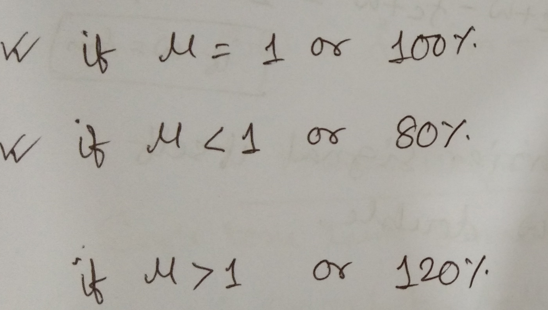 ✓ if μ = 1 or 100%.
✓ if μ < 1 or 80%.
if μ > 1 or 120%.